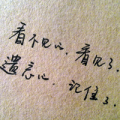 看不见的，看见了，
遗忘的，记住了。